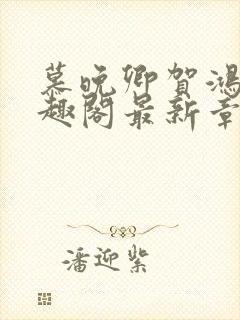 慕晚卿贺鸿
趣阁最新章
潘迎紫